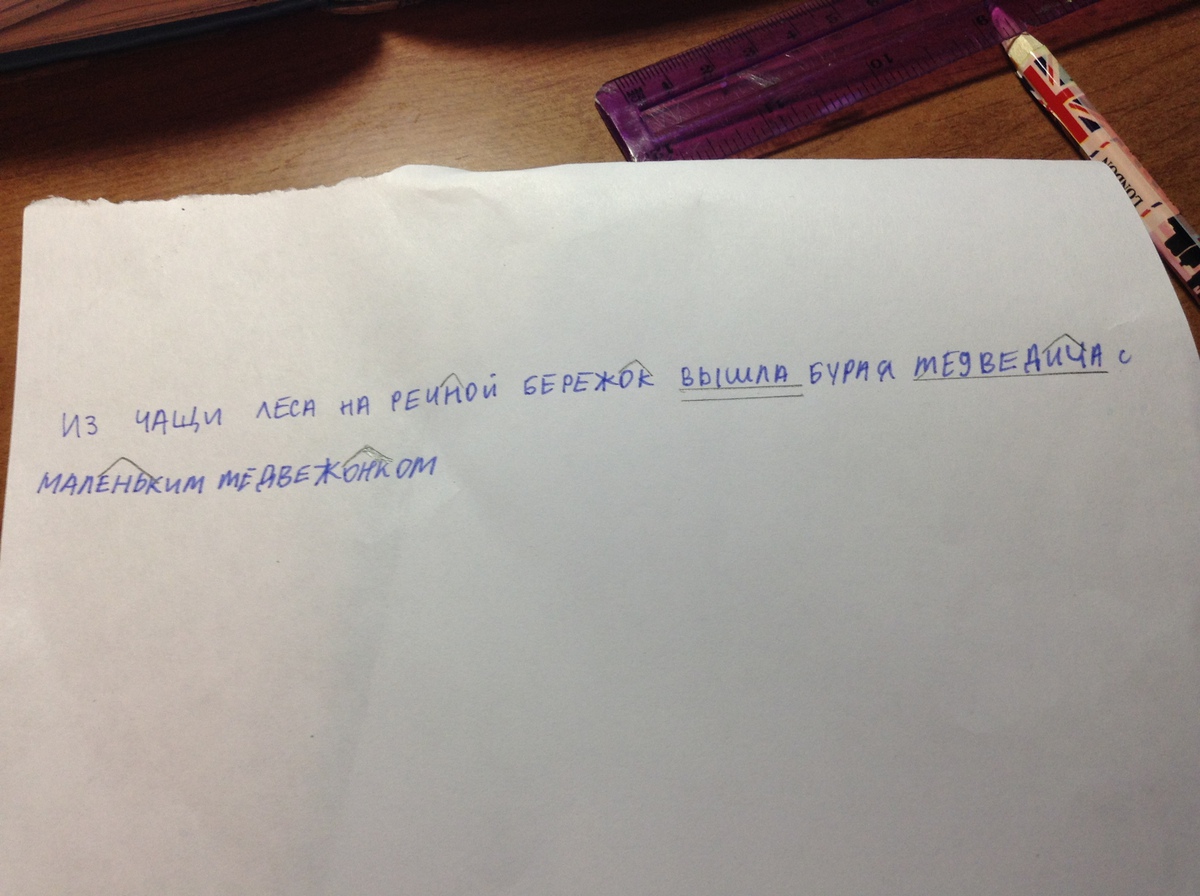 ИЗ ЧАЩИ ЛЕСА НА РЕЧНОЙ БЕРЕЖОК ВЫШЛА БУРАЯ МЕДВЕДИЦА С
МАЛЕНЬКИМ МЕДВЕЖОНКОМ
LONDON